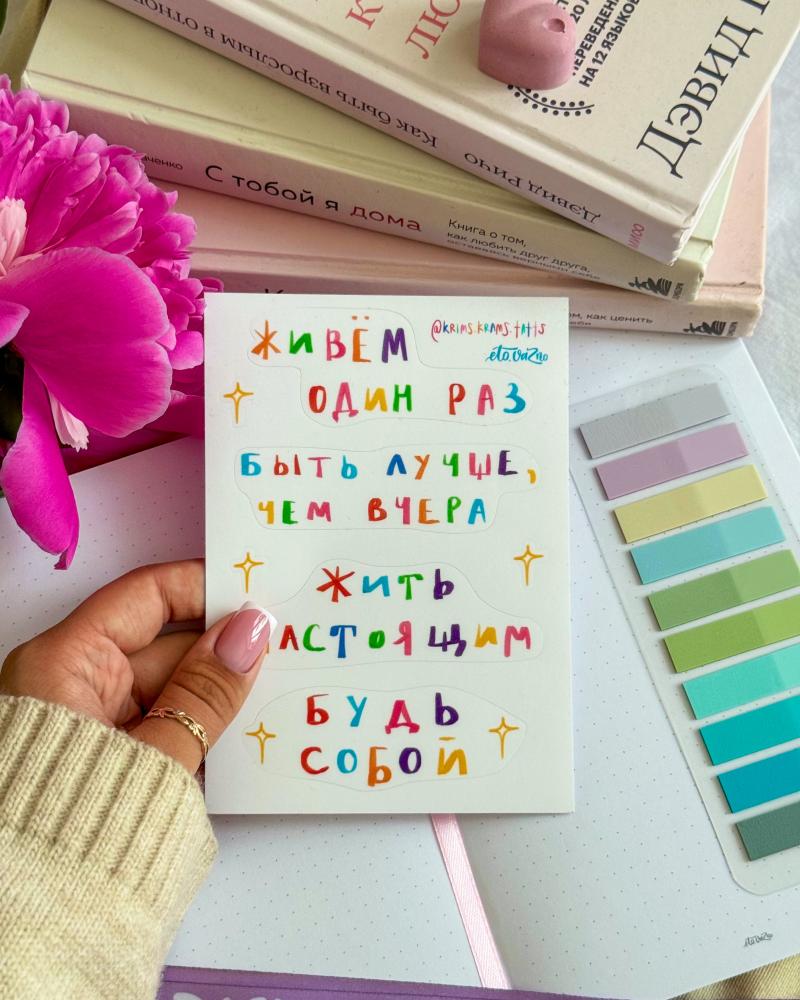 Дэвид
ПЕРЕВЕДЕН
НА 12 ЯЗЫКОВ
Дэвид Ричо Как быть взрослым в
С тобой я дома
Книга о том,
как любить друг друга,
оставаясь верными себе
как ценить
ЖИВЁМ
ОДИН РАЗ
@KRIMS.KRAMS.TATTS
éto.vaZno
БЫТЬ ЛУЧШЕ,
ЧЕМ ВЧЕРА
ЖИТЬ
АСТОЯЩИМ
БУДЬ
СОБОЙ
éto.vaZno